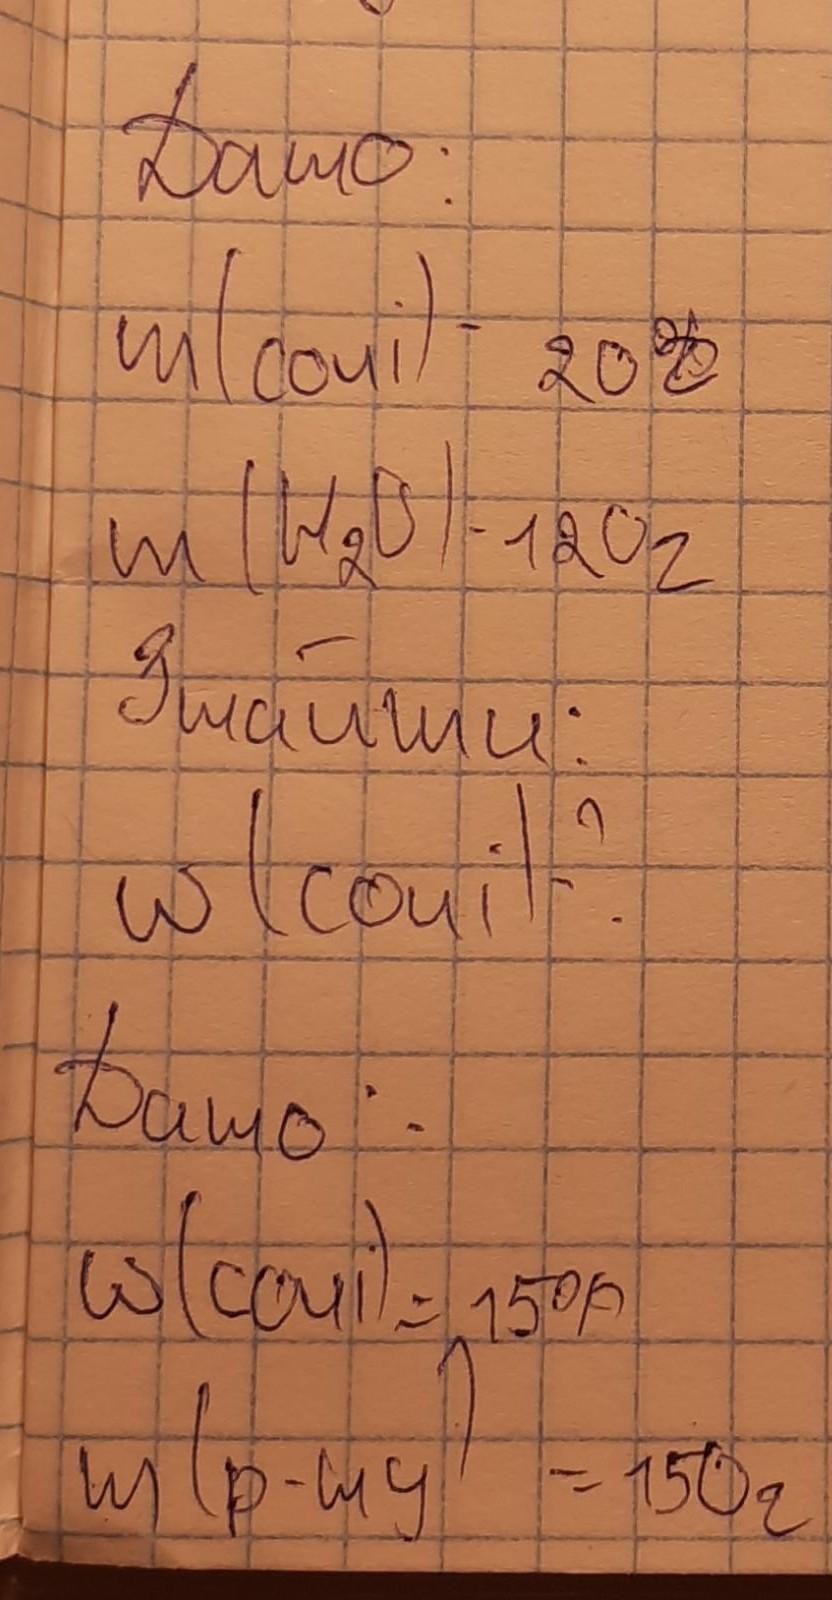 Дано:
m(солі) - 20г
m(H₂O) - 120г
Знайти:
w(солі) - ?
Дано:
w(солі) = 15%
m(р-ну) = 150г